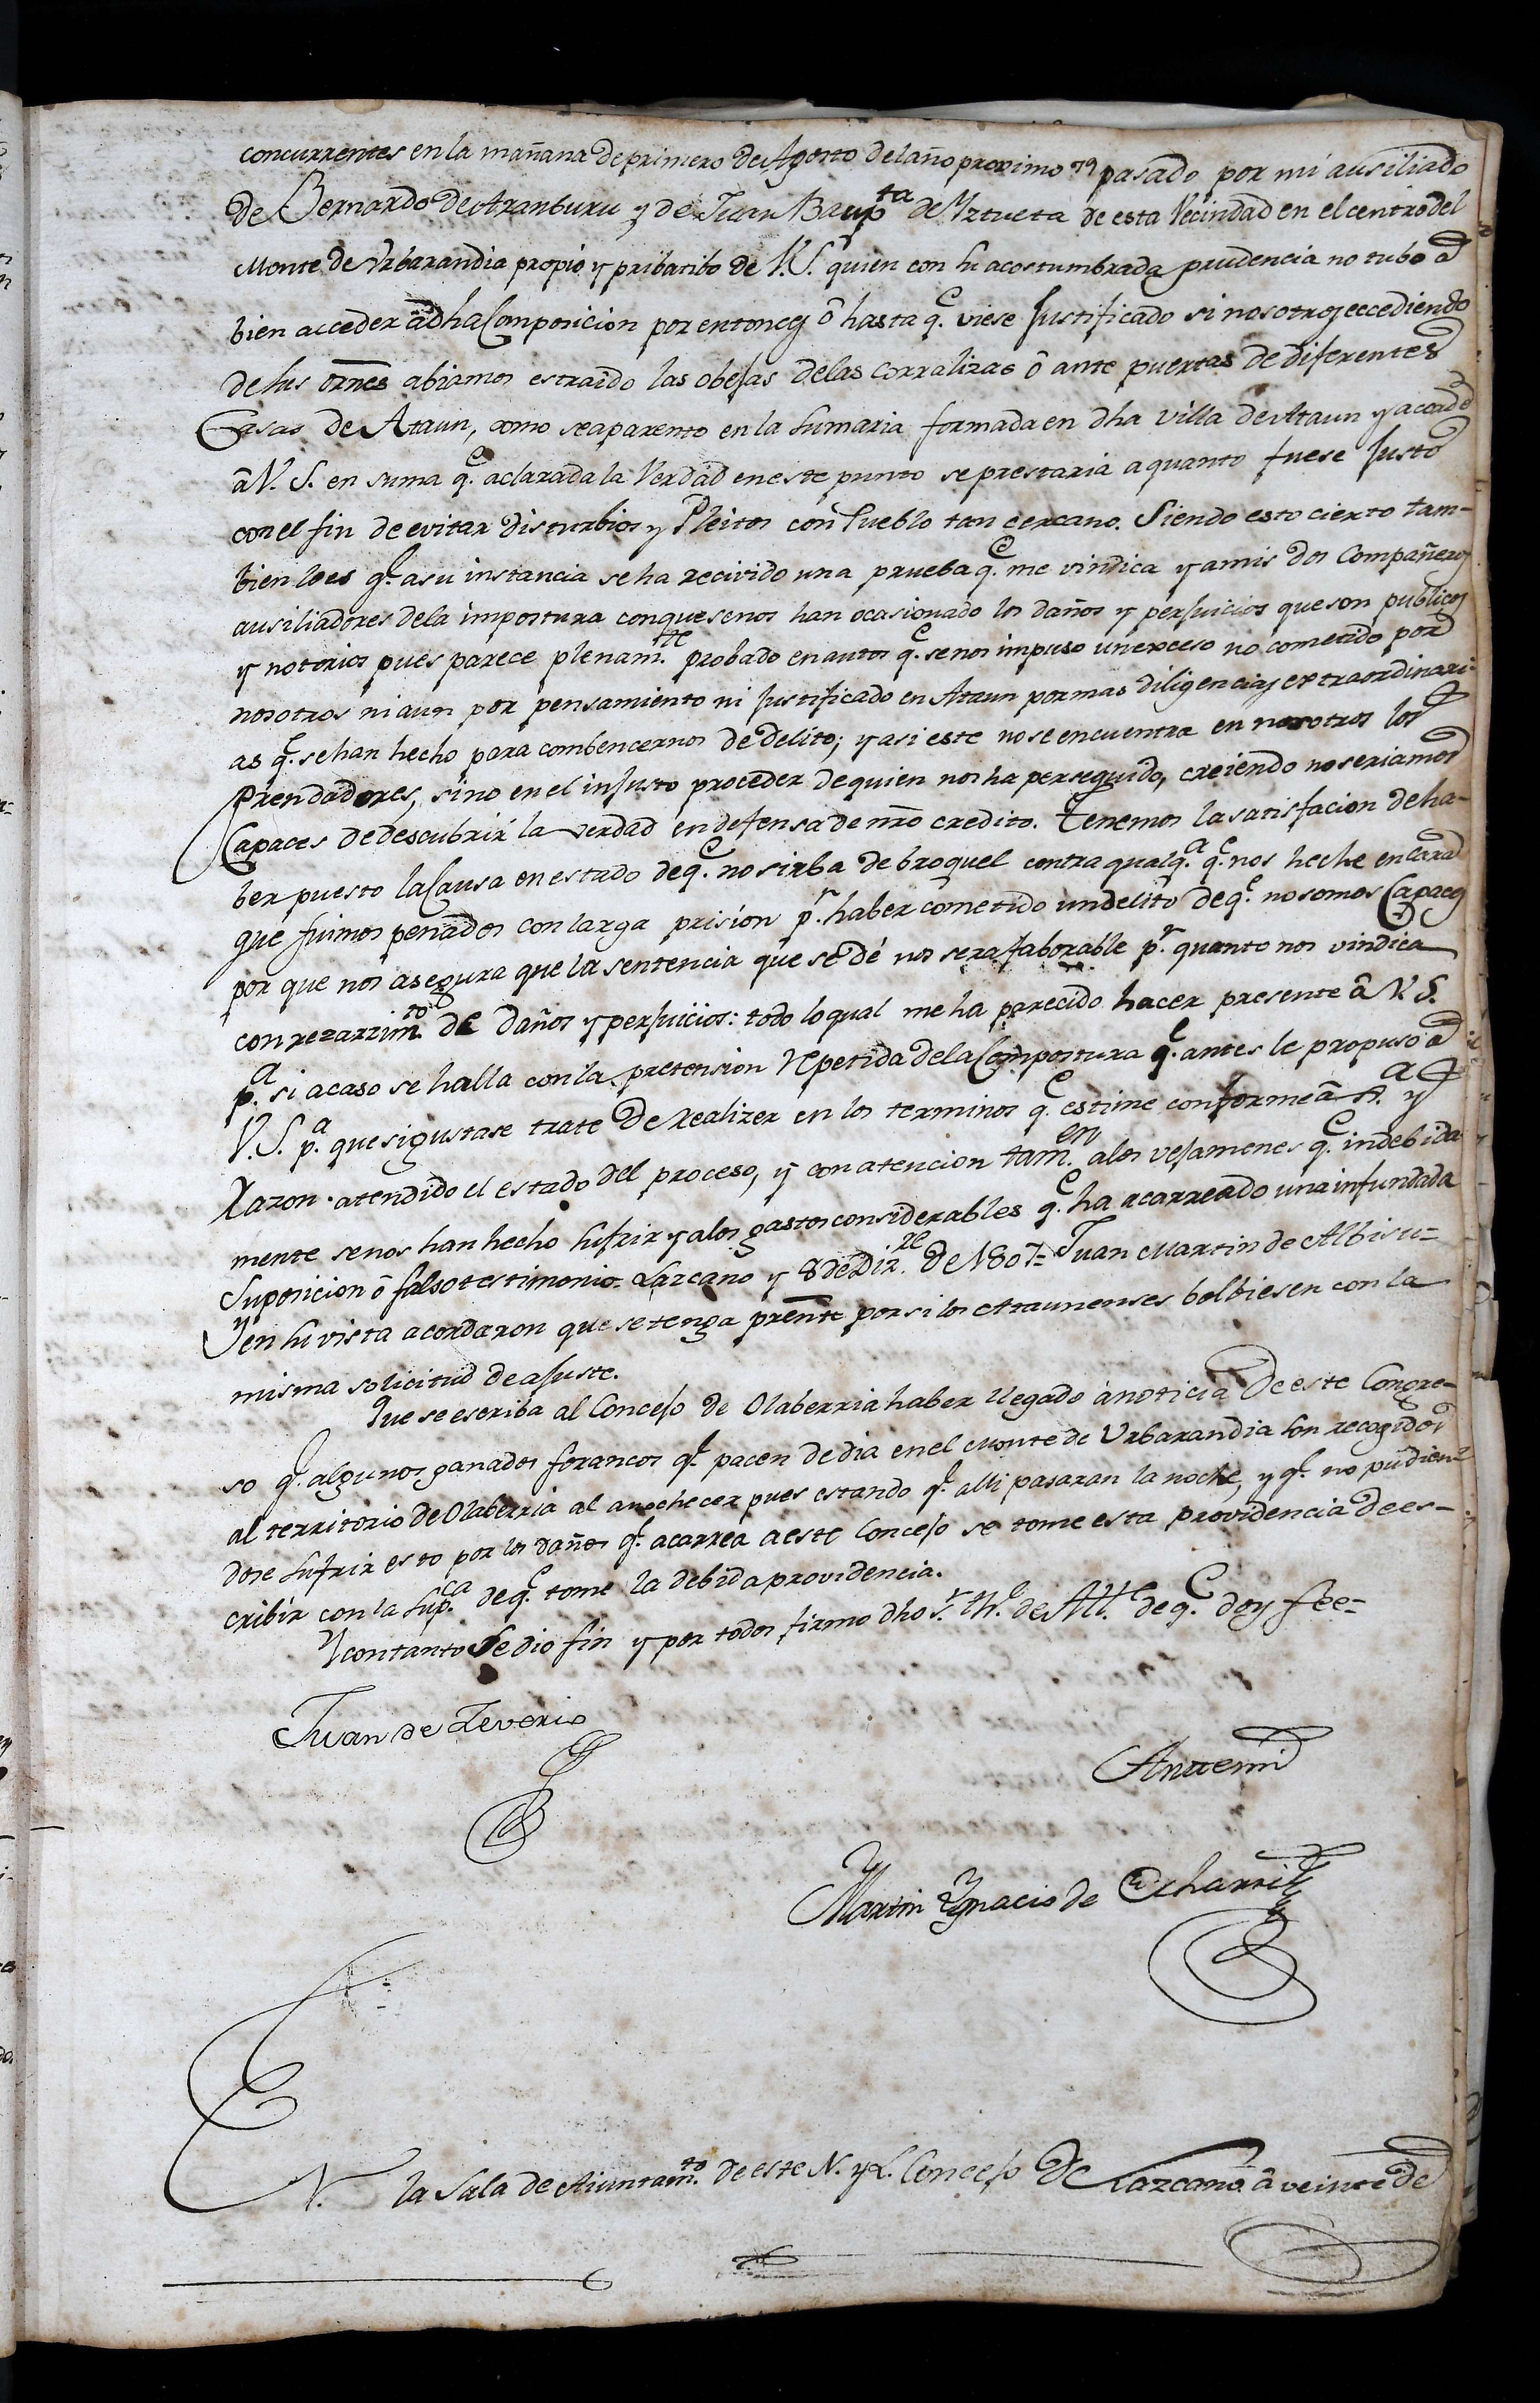 concurrentes en la mañana de primero de Agosto del año proximo pasado por mi ausiliado
de Bernardo de Aranburu y de Juan Baupta de Yztueta de esta Vecindad en el centro del
Monte de Urbarandia propio y pribatibo de V.S. quien con su acostumbrada prudencia no tubo â
bien acceder âdha Composicion por entonces ô hasta q.e viese Justificado si nosotros eccediendo
de sus ornes abiamos estraido las obejas delas corralizas ô ante puertas de diferentes
Casas de Ataun, como se aparento en la sumaria formada en dha villa de Ataun y acordo
â V.S. en suma q.e aclarada la Verdad eneste punto se prestaria a quanto fuese Justo
con el fin de evitar disturbios y Pleitos con Pueblo tan cercano. Siendo esto cierto tam-
bien lo es q.e a su instancia se ha recivido una prueba q.e me vindica y a mis dos Compañeros
ausiliadores dela impostura conque senos han ocasionado los daños y perjuicios que son publicos
y notorios pues parece plenam.te probado en autos q.e se nos impuso un exceso no cometido por
nosotros ni aun por pensamiento ni justificado en Ataun por mas diligencias extraordinari-
as q.e se han hecho para combencernos de delito; y asi este no se encuentra en nosotros los
Prendadores, sino en el injusto proceder de quien nos ha perseguido, creiendo no seriamos
Capaces de descubrir la verdad en defensa de nro credito. Tenemos la satisfacion de ha-
ber puesto la Causa en estado de q.e no sirba de broquel contra qualq.a q.e nos heche en cara
que fuimos penados con larga prision p.r haber cometido un delito de q.e no somos Capaces
por que nos asegura que la sentencia que se dé nos sera faborable p.r quanto nos vindica
con rezarzim.to de daños y perjuicios: todo lo qual me ha parecido hacer presente â V.S.
p.a si acaso se halla con la pretension repetida dela Compostura q.e antes le propuso â
V.S. p.a que si gustase trate de realizer en los terminos q.e estime conforme â y
Razon atendido el estado del proceso, y con atencion tam.en a los vejamenes q.e indebida
mente se nos han hecho sufrir y a los gastos considerables q.e ha acarreado una infundada
Suposicion ô falso testimonio. Lazcano y 8 de Diz.re de 1807= Juan Martin de Albisu=
Y en su vista acordaron que se tenga prente por si los Ataunenses bolbiesen con la
misma solicitud de ajuste.
Que se escriba al Concejo de Olaberria haber llegado à noticia de este Congre-
so q.e algunos ganados foraneos q.e pacen de dia en el Monte de Urbarandia son recogidos
al territorio de Olaberria al anochecer pues estando q.e alli pasaran la noche, y q.e no pudien-
dose sufrir esto por los daños q.e acarrea a este Concejo se tome esta providencia de es-
cribir con la sup.ca de q.e tome la debida providencia.
Y con tanto se dio fin y por todos firmo dho S.r Th.e de Alc.e de q.e doy fee=
Juan de Zeverio
Antemi
Martin Ygnacio de Echarri
EN. la Sala de Aiuntam.to de este N. y L. Concejo de Lazcano â veinte de